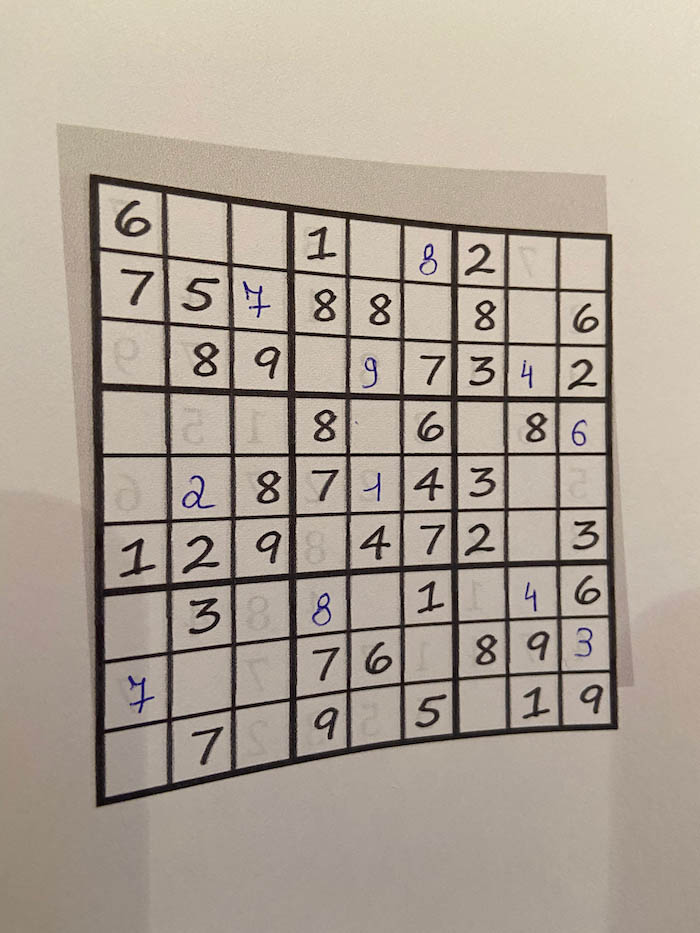 6 1 8 2
7 5 7 8 8 8 6
8 9 9 7 3 4 2
8 6 8 6
2 8 7 1 4 3
1 2 9 4 7 2 3
3 8 1 4 6
7 7 6 8 9 3
7 9 5 1 9